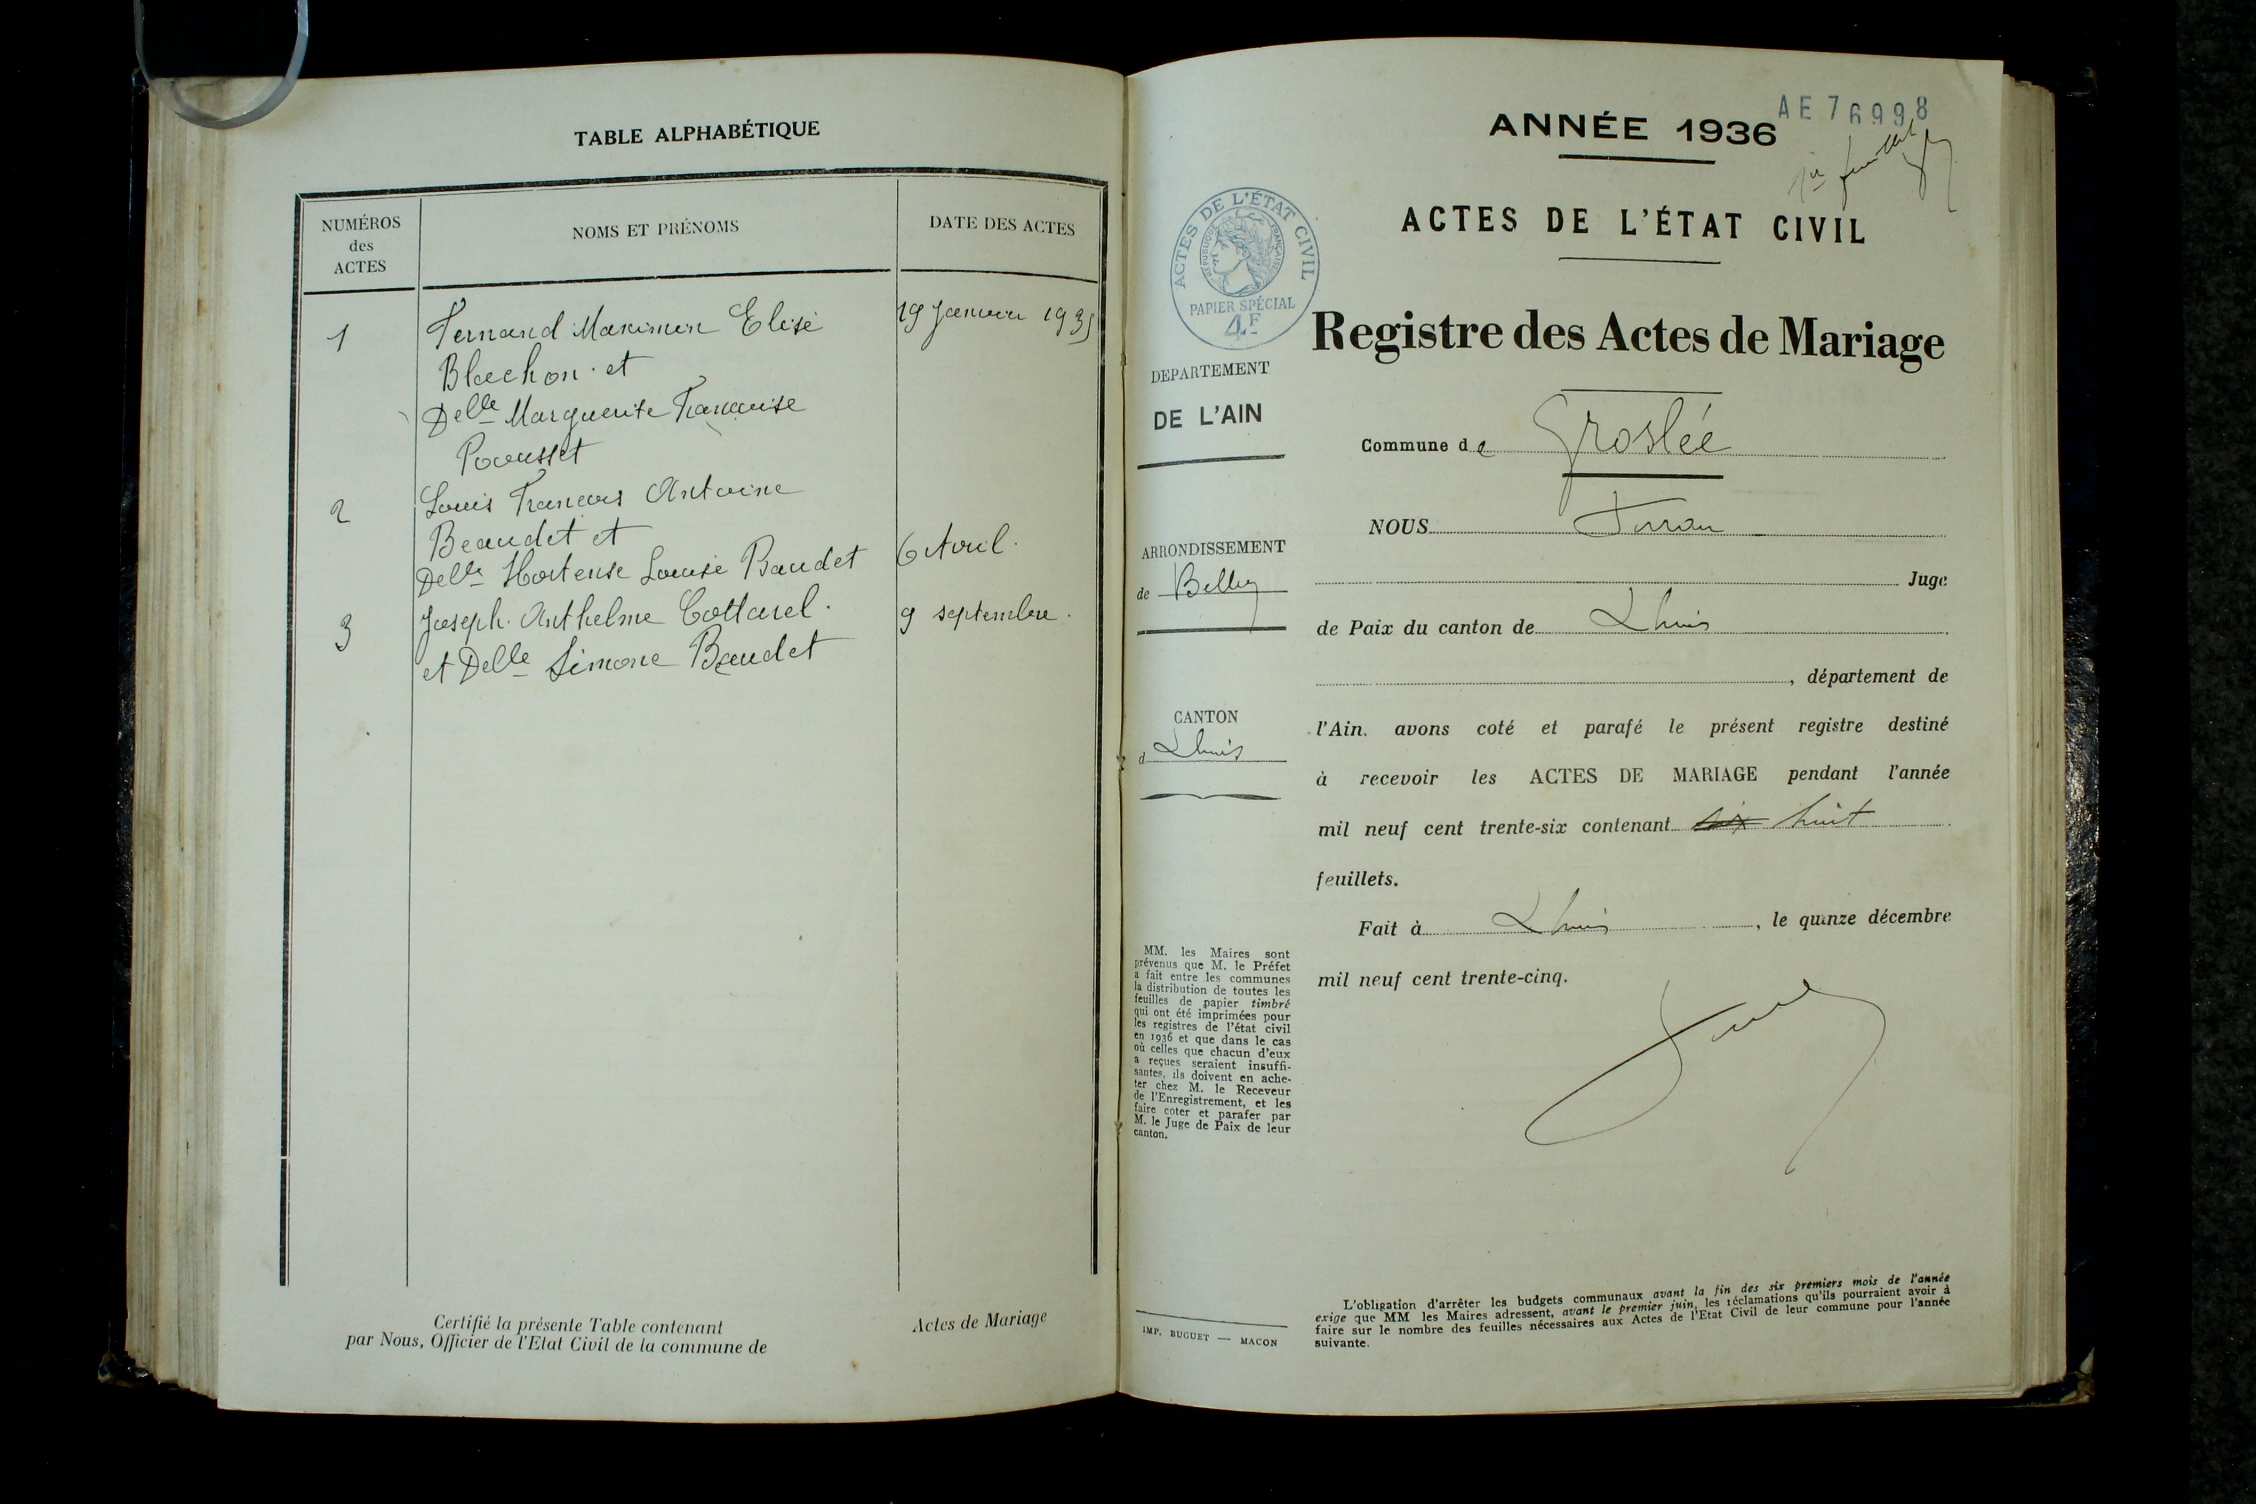 TABLE ALPHABÉTIQUE
NUMÉROS
des
ACTES
NOMS ET PRÉNOMS
DATE DES ACTES
1
Fernand Maximin Elisé
19 Janvier 1935
Blachon et
Delle Marguerite Françoise
Pousset
2
Louis François Antoine
Beaudet et
Delle Hortense Louise Baudet
6 Avril.
3
Joseph Anthelme Cottarel.
9 septembre.
et Delle Simone Baudet
Certifié la présente Table contenant
Actes de Mariage
par Nous, Officier de l'Etat Civil de la commune de
AE 76998
ANNÉE 1936
1er feuillet
ACTES DE L'ÉTAT CIVIL
ACTES DE L'ÉTAT CIVIL
RÉPUBLIQUE FRANÇAISE
PAPIER SPÉCIAL
4F
Registre des Actes de Mariage
DEPARTEMENT
DE L'AIN
Commune de Groslée
NOUS
ARRONDISSEMENT
de Belley
Juge
de Paix du canton de Lhuis
, département de
CANTON
d Lhuis
l'Ain. avons coté et parafé le présent registre destiné
à recevoir les ACTES DE MARIAGE pendant l'année
mil neuf cent trente-six contenant six huit
feuillets.
Fait à Lhuis, le quinze décembre
mil neuf cent trente-cinq.
MM. les Maires sont
prévenus que M. le Préfet
a fait entre les communes
la distribution de toutes les
feuilles de papier timbré
qui ont été imprimées pour
les registres de l'état civil
en 1936 et que dans le cas
où celles que chacun d'eux
a reçues seraient insuffi-
santes, ils doivent en ache-
ter chez M. le Receveur
de l'Enregistrement, et les
faire coter et parafer par
M. le Juge de Paix de leur
canton.
IMP. BUGUET — MACON
L'obligation d'arrêter les budgets communaux avant la fin des six premiers mois de l'année
exige que MM les Maires adressent, avant le premier juin, les réclamations qu'ils pourraient avoir à
faire sur le nombre des feuilles nécessaires aux Actes de l'Etat Civil de leur commune pour l'année
suivante.